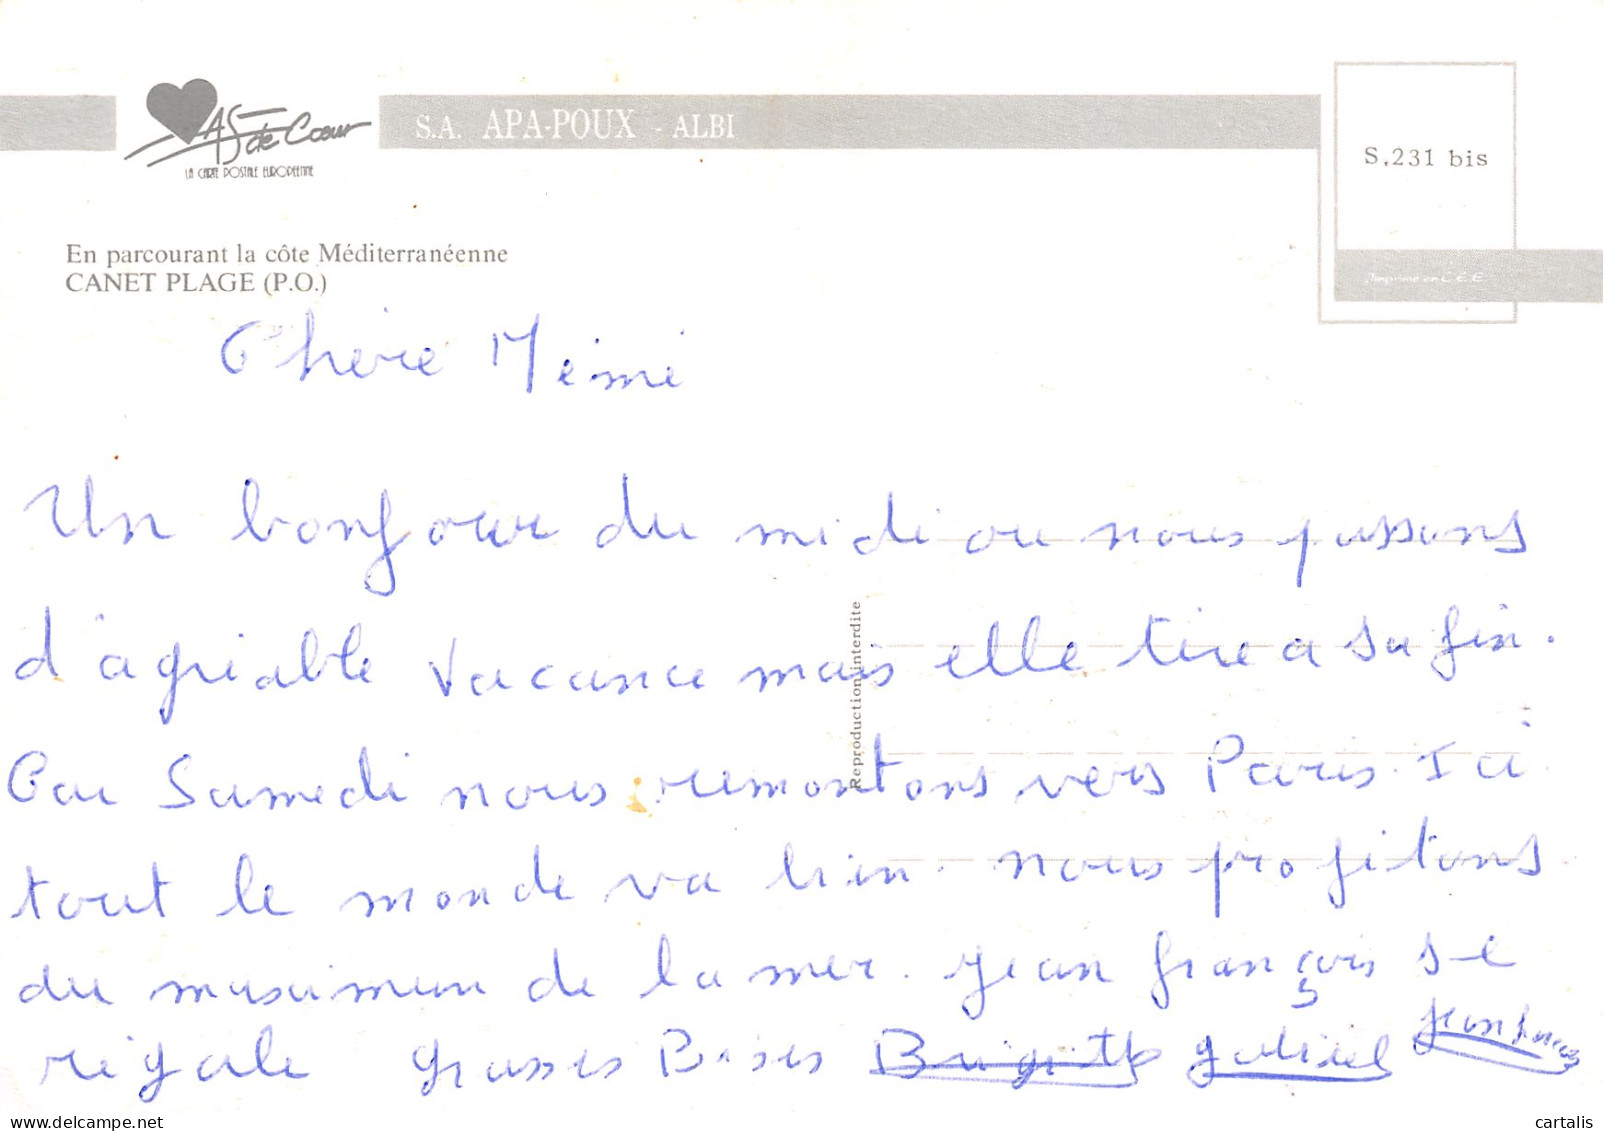 AS de Cœur
LA CARTE POSTALE EUROPÉENNE
S.A. APA-POUX - ALBI
S.231 bis
Imprimé en C.E.E.
En parcourant la côte Méditerranéenne
CANET PLAGE (P.O.)
Chère Mémé
Un bonjour du midi ou nous passons
d'agréable vacance mais elle tire a sa fin.
Car Samedi nous remontons vers Paris. Ici
tout le monde va bien. nous profitons
du maximum de la mer. jean françois se
régale grosses Bises Brigitte gabriel jean francois
Reproduction interdite
cartalis